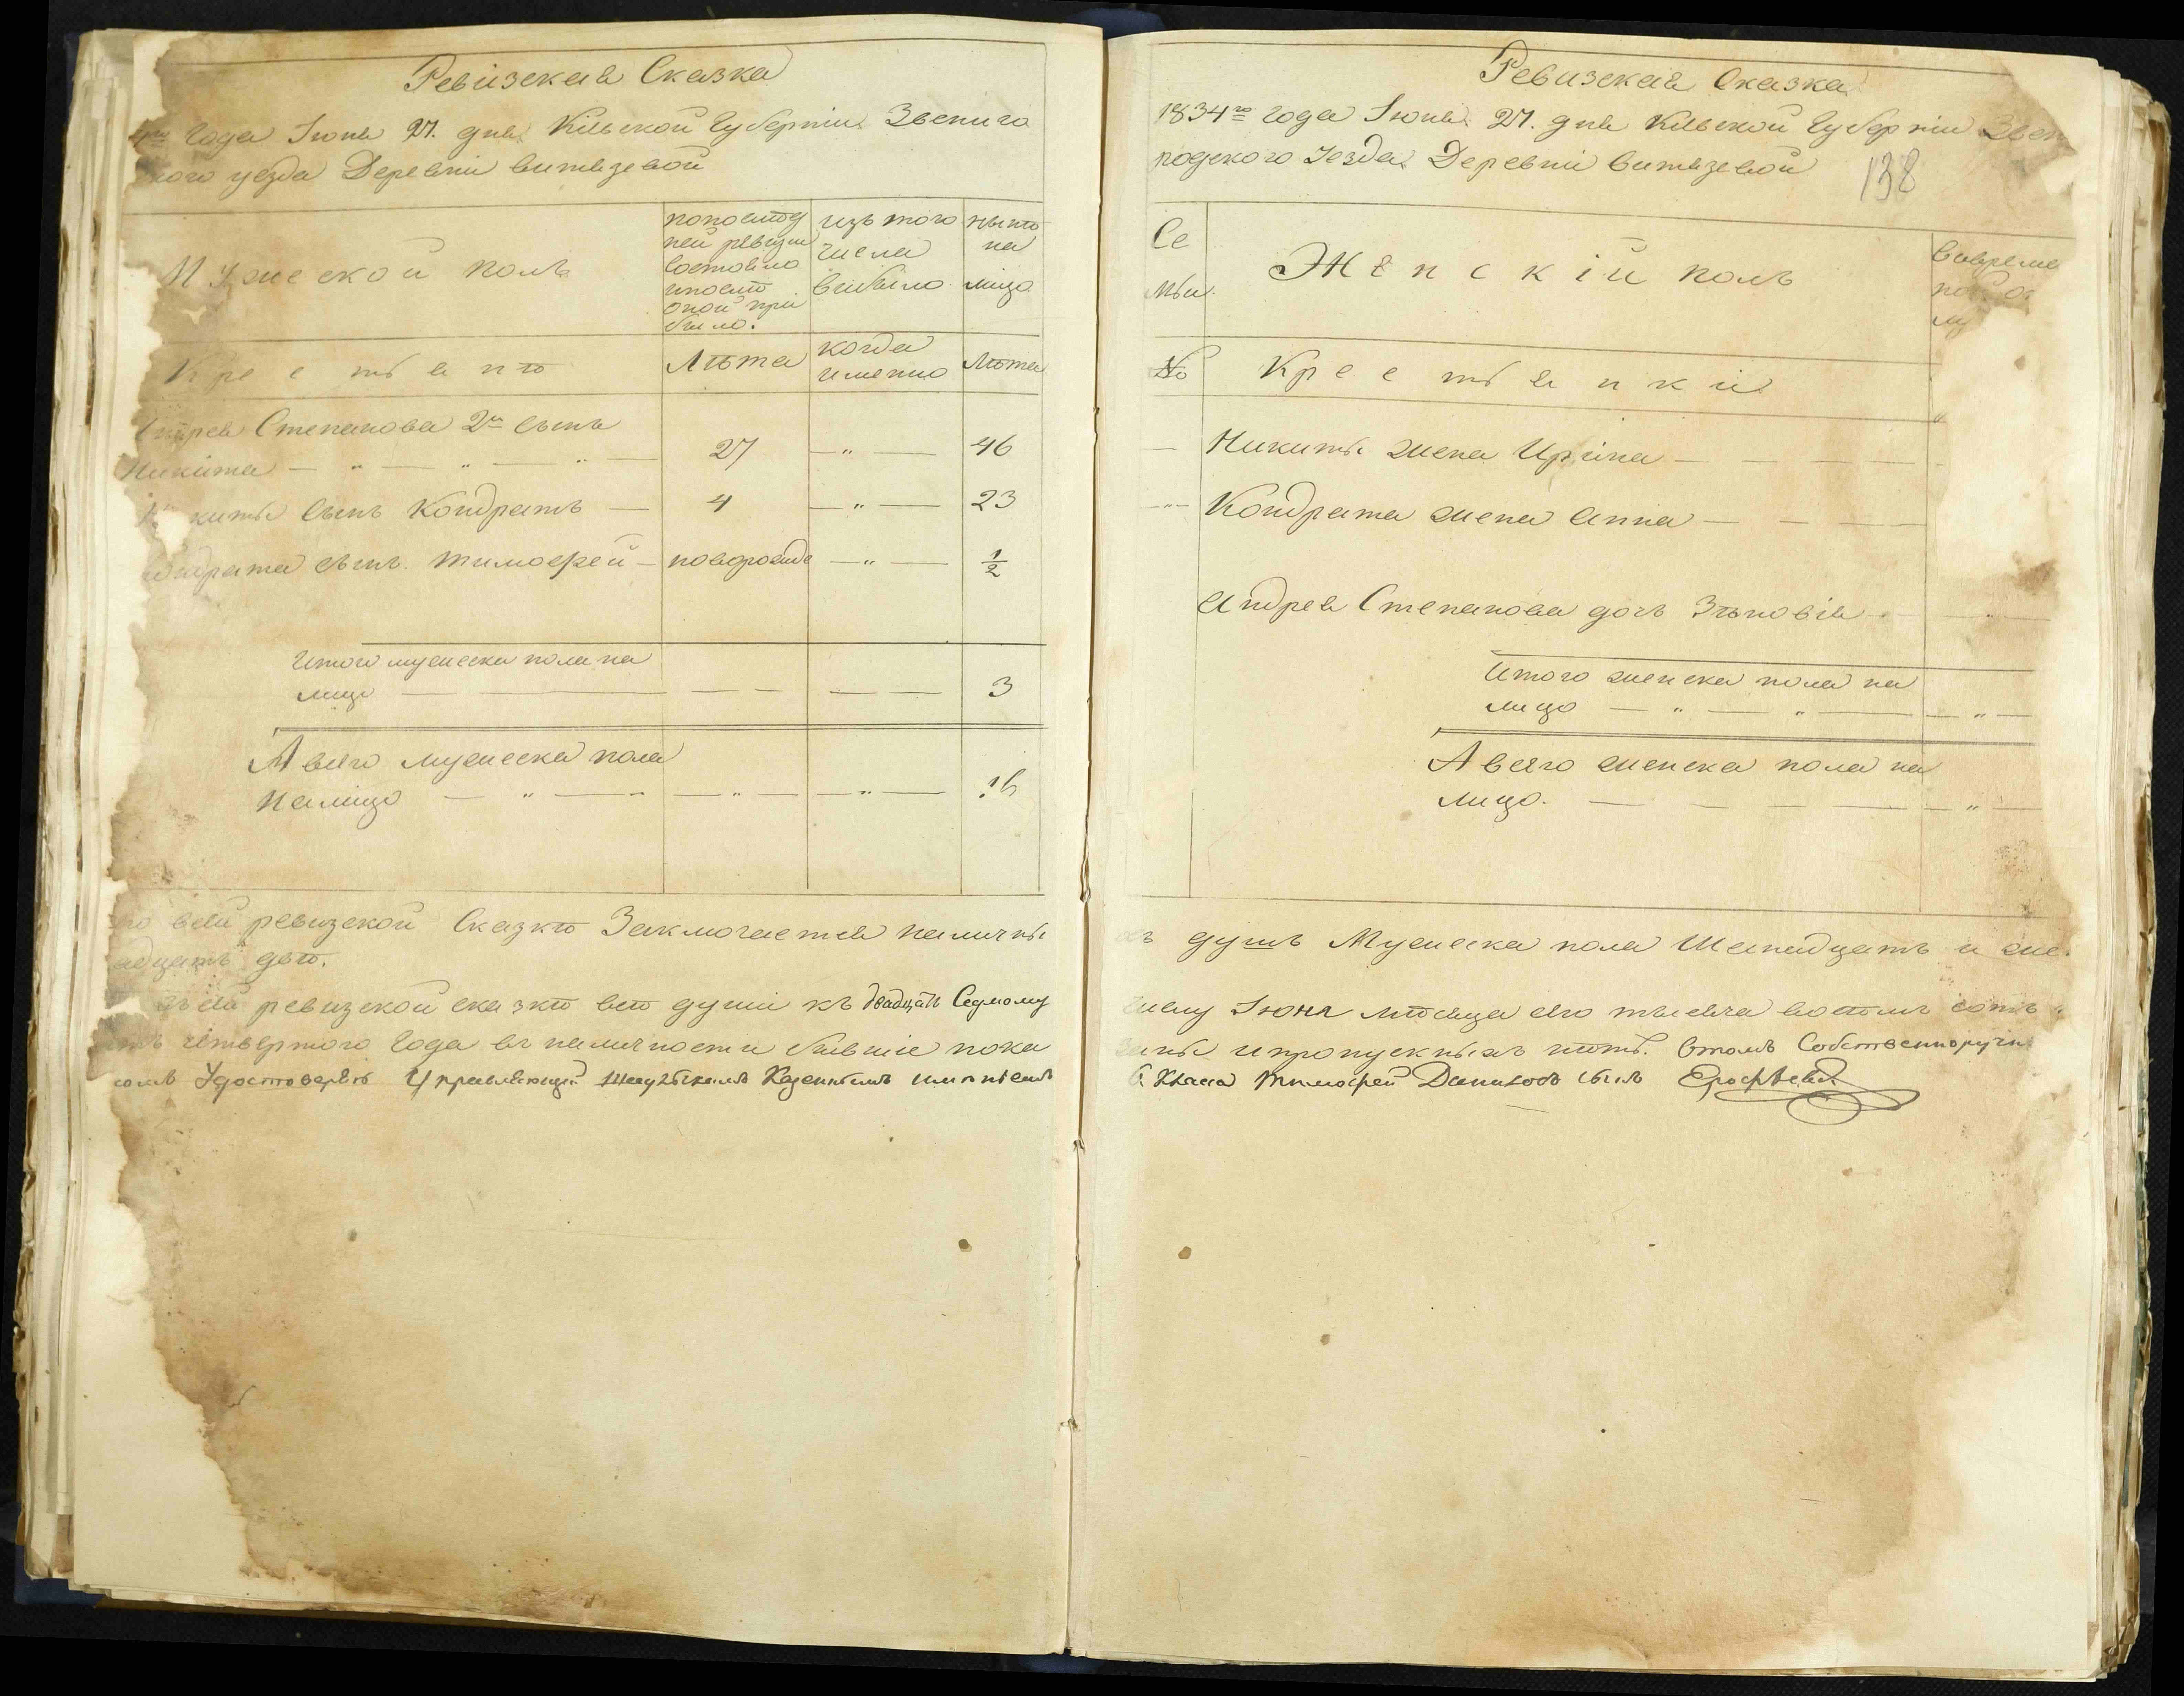 Ревизская Сказка
года Июня 27. дня Кіевской Губерніи Звениго
уезда Деревни Витязевой
Мужеской полъ
попослѣд
ней ревизіи
состояло
ипослѣ
оной при
было.
изъ того
числа
выбыло
нынѣ
на
лицо
Крестьянѣ
Лѣта
когда
именно
Лѣта
Степанова 2й сынъ
Никита — " — " — " — 27 — " — 46
сынъ Кондратъ — 4 — " — 23
сынъ Тимофей — новорожде — " — 1/2
Итого мужеска пола на
лицо — — — — — 3
А всего мужеска пола
налицо — " — " — " — " — 16
сей ревизской Сказкѣ Заключается наличны
двѣ.
сей ревизской сказкѣ всѣ души къ двадцать Седмому
четвертого года въ наличности бывшіе пока
Удостоверяю Управляющій Казеннымъ имѣніемъ
Ревизская Сказка
1834го года Июня 27. дня Кіевской Губерніи Звен
родского Уезда Деревни Витязевой
138
Се
мьи
Женскій полъ
Вовреме
№
Крестьянки
— Никиты жена Ирина — — —
— " — Кондрата жена Анна — — —
Андрея Степанова дочь Зѣновія —
Итого женска пола на
лицо — " — " — — " —
А всего женска пола на
лицо. — — — — — " —
душъ Мужеска пола Шеснадцать и же
Июня мѣсяца сего тысяча восѣмъ сотъ
и пропускныхъ нѣтъ. Втомъ Собственноручно
Класса Тимофей Даниловъ сынъ Ерофѣевъ.